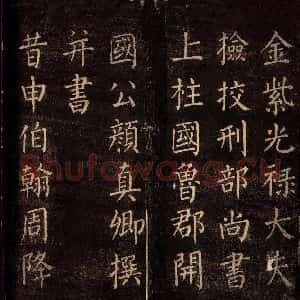 金紫光祿大夫
檢校刑部尚書
上柱國魯郡開
國公顏真卿撰
并書
昔申伯翰周降
Shufawang.CN